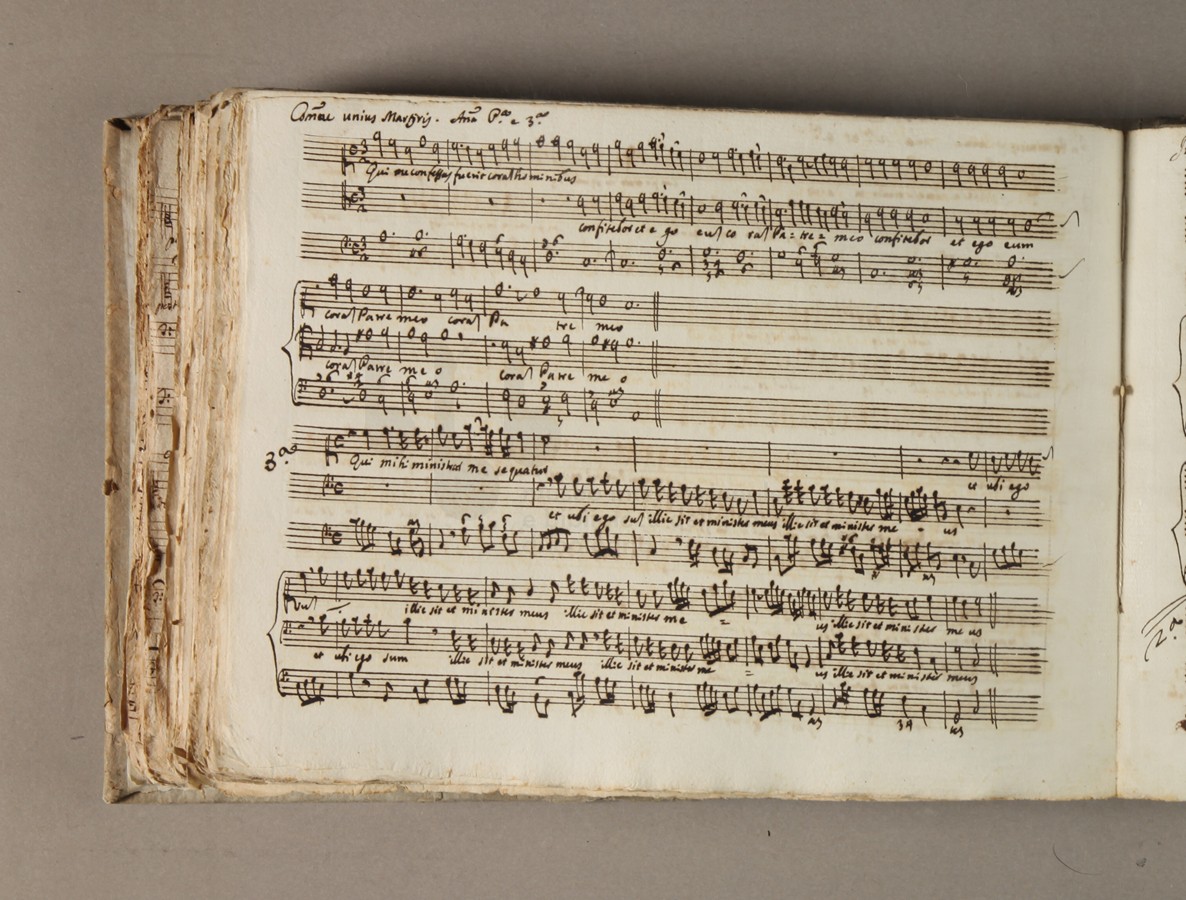 Com̃e unius Martyris. Anã P.ª e 3.ª
Qui me confessus fuerit coram hominibus
confitebor et ego eum co ram Pa- tre meo confitebor et ego eum
coram Patre meo coram Pa tre meo
coram Patre me o coram Patre me o
3.ª
Qui mihi ministrat me sequatur
et ubi ego
et ubi ego sum illic sit et minister meus illic sit et minister me us
sum illic sit et minister meus illic sit et minister me us illic sit et minister me us
et ubi ego sum illic sit et minister meus illic sit et minister me us illic sit et minister meus
2.ª